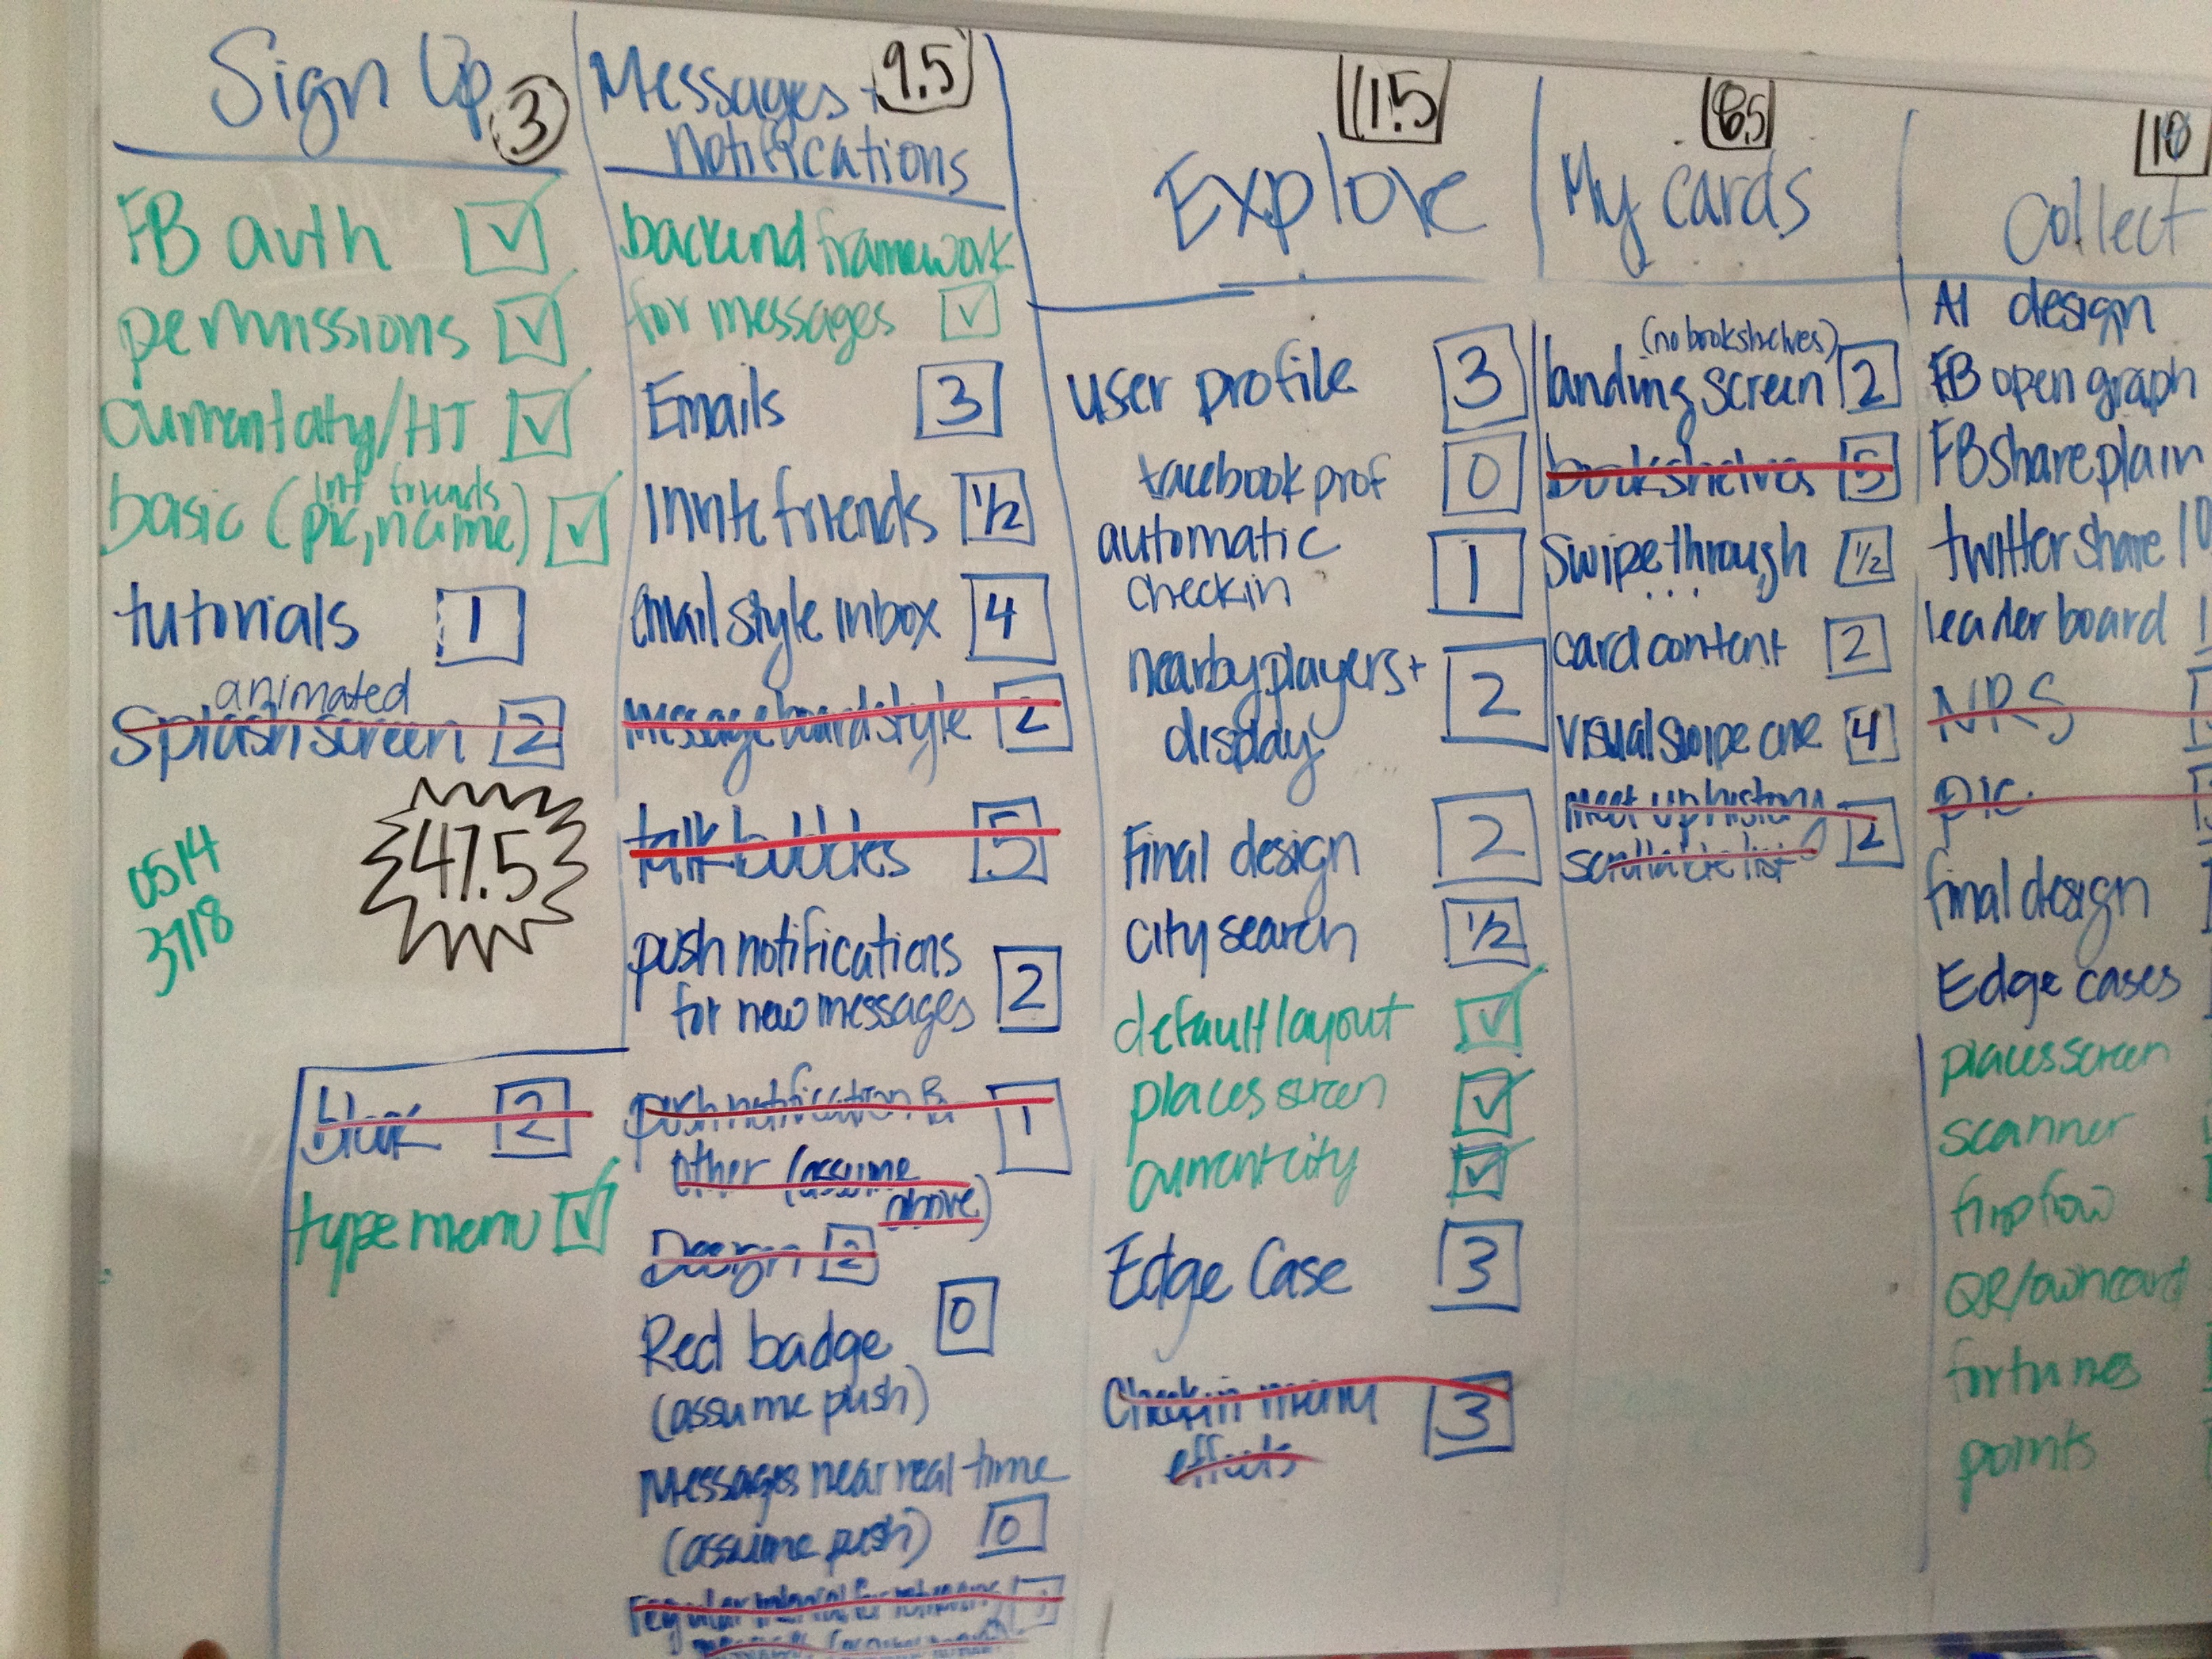 Sign Up 3
FB auth
permissions
current city/HT
int friends
basic (pic, name)
tutorials 1
animated
Splash screen 2
47.5
0514
3718
2
type menu
Messages + 9.5
Notifications
backend framework
for messages
Emails 3
Invite friends 1/2
email style inbox 4
message board style 2
talk bubbles 5
push notifications
for new messages 2
push notification for 1
other (assume
above)
Design 2
Red badge 0
(assume push)
Messages near real time
(assume push) 0
regular
11.5
Explore
user profile 3
facebook prof 0
automatic
checkin 1
nearby players +
display 2
Final design 2
city search 1/2
default layout
places screen
current city
Edge Case 3
Checkin menu 3
effects
8.5
My cards
(no bookshelves)
landing screen 2
bookshelves 5
Swipe through 1/2
card content 2
visual swipe one 4
meet up history
scrollable list 2
10
Collect
AI design
FB open graph
FB share plain
twitter share
leader board
NRS
pic
final design
Edge cases
places screen
scanner
QR/own card
fortunes
points